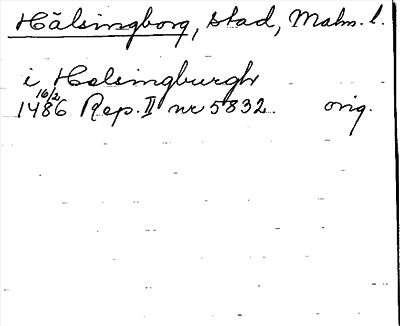 Hälsingborg, stad, Malm. l.
i Helsingburgh
16/2
1486 Rep. II nr 5832. orig.